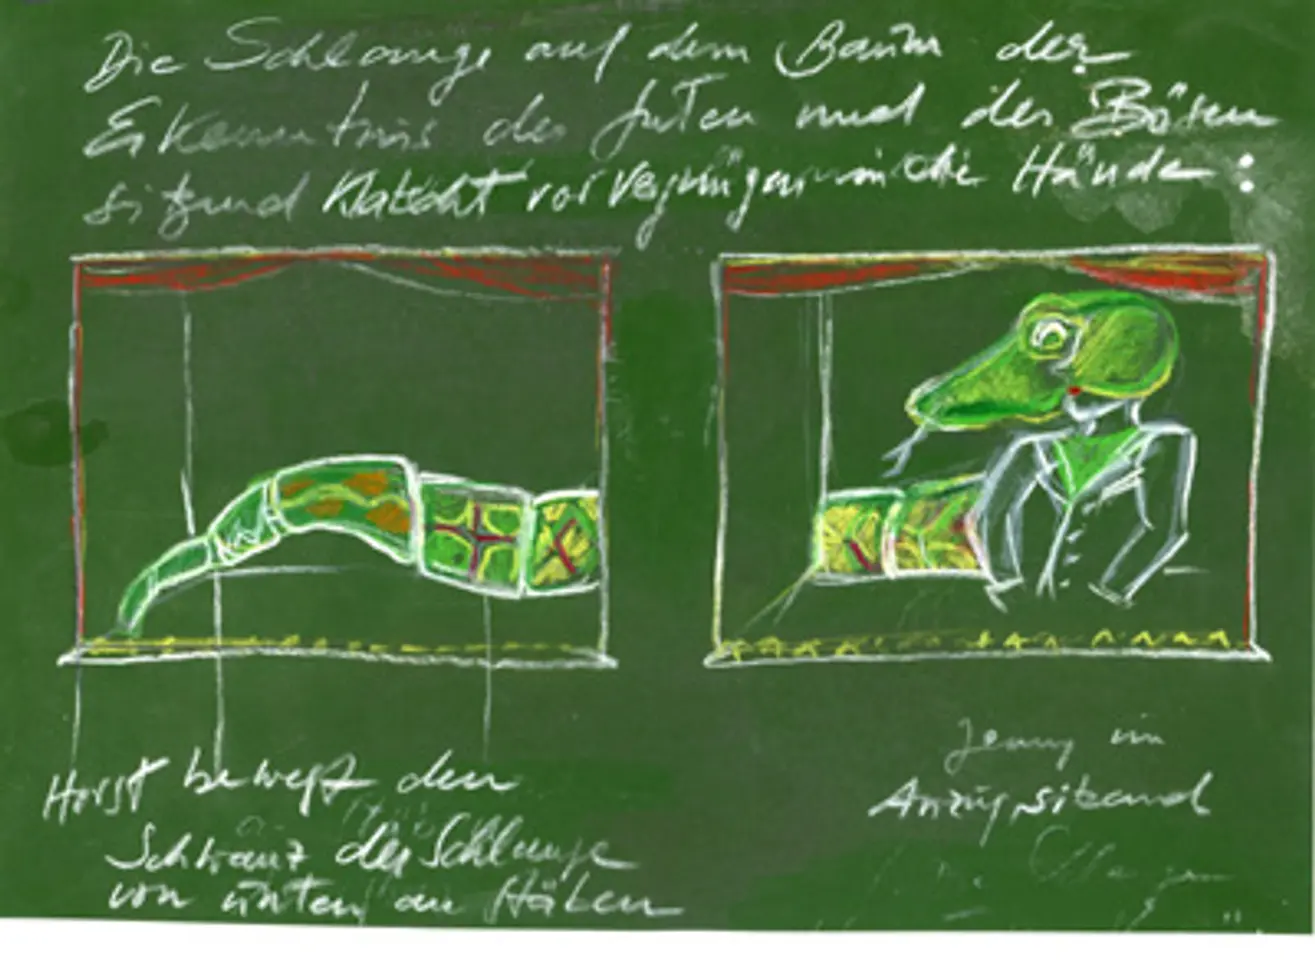 Die Schlange auf dem Baum der
Erkenntnis des Guten und des Bösen
sitzend klatscht vor Vergnügen in die Hände:
Horst bewegt den
Schwanz der Schlange
von unten an Stäben
Jenny im
Anzug sitzend